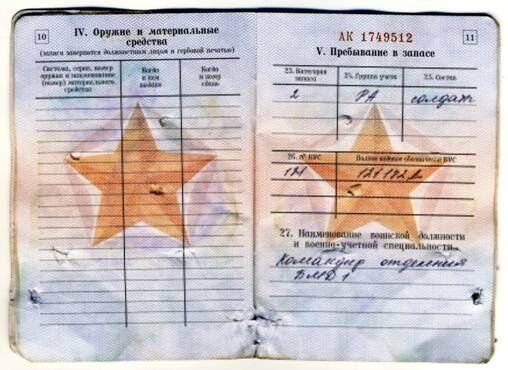 10
IV. Оружие и материальные
средства
(записи заверяются должностным лицом и гербовой печатью)
Система, серия, номер
оружия и наименование
(номер) материального
средства
Когда
и кем
выдано
Когда
и кому
сдано
АК 1749512
11
V. Пребывание в запасе
23. Категория
запаса
24. Группа учета
25. Состав
2
РА
солдат
26. № ВУС
Полное кодовое обозначение ВУС
27. Наименование воинской должности
и военно-учетной специальности
Командир отделения
БМД 1